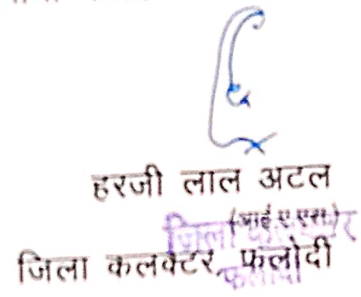 हरजी लाल अटल
(आई.ए.एस.)
जिला कलक्टर, फलोदी
जिला कलक्टर
फलोदी